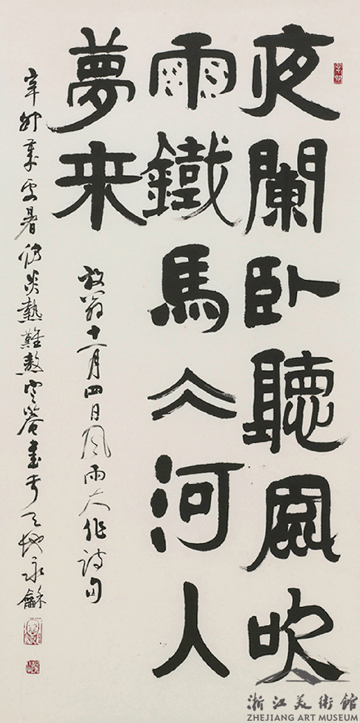 夜闌卧聽風吹
雨鐵馬仌河人
夢来
放翁十一月四日風雨大作詩句
辛卯處暑炎熱難熬書永龢
浙江美術館
ZHEJIANG ART MUSEUM